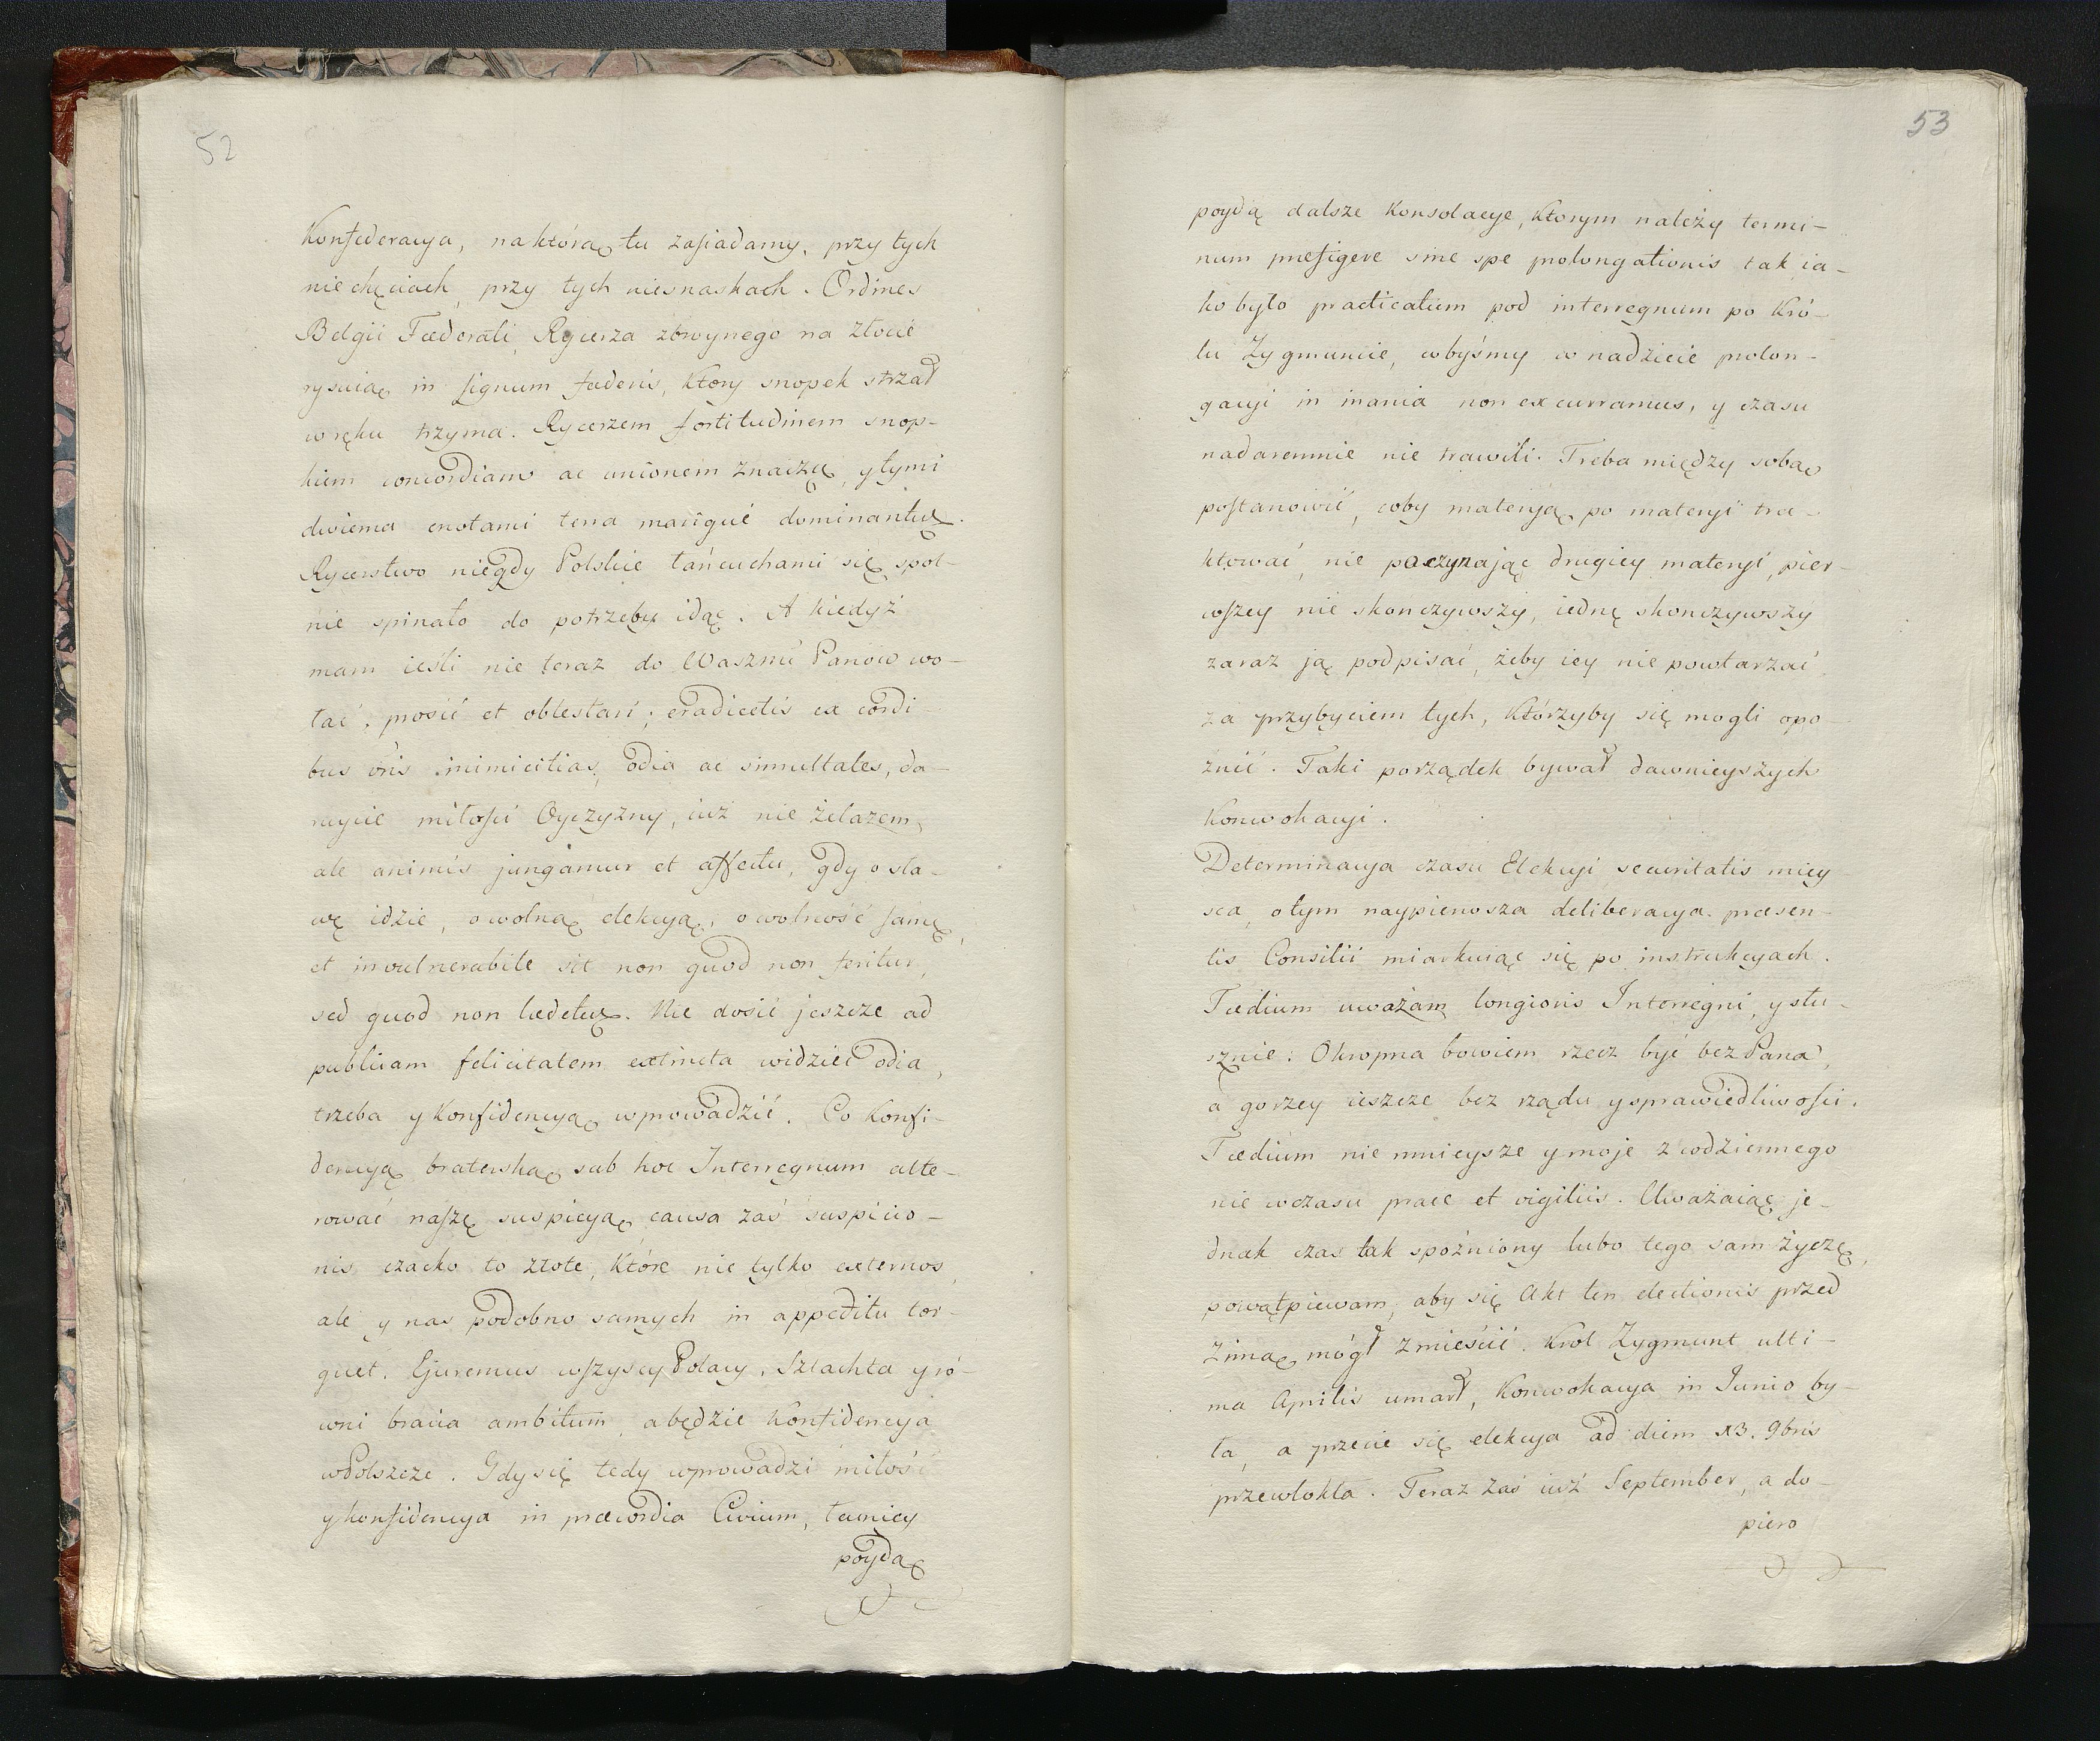 52
Konfederacya, na którą tu zasiadamy, przy tych
niechęciach, przy tych niesnaskach. Ordines
Belgii Fœderati, Rycerza zbroynego na złocie
rysuią in signum fæderis, ktory snopek strzał
w ręku trzyma. Rycerzem fortitudinem snop-
kiem concordiam ac unionem znaczą, y tymi
dwiema cnotami terra marique dominantur.
Rycerstwo niegdy Polskie łańcuchami się spol-
nie spinało do potrzeby idąc. A kiedyż
mam ieśli nie teraz do Waszmć Panów wo-
łać, prosić et obtestari; eradicetis ex cordi-
bus vris inimicitias, odia ac simultates, da-
ruycie miłości Oyczyzny, iuż nie żelazem,
ale animis jungamur et affectu, gdy o sła-
wę idzie, o wolną elekcyą, o wolność samę,
et invulnerabile sit non quod non feritur,
sed quod non lædetur. Nie dosić jeszcze ad
publicam felicitatem extincta widzieć odia,
trzeba y Konfidencyą wprowadzić. Co Konfi-
dencyą braterską sub hoc Interregnum alte-
rować naszę suspicyą, causa zaś suspicio-
nis czacko to złote, które nie tylko externos,
ale y nas podobno samych in appetitu tor-
quet. Ejuremus wszyscy Polacy, Szlachta y ró-
wni bracia ambitum, a będzie Konfidencya
w Polszcze. Gdy się tedy wprowadzi miłość
y konfidencya in præcordia Civium, łacniey
poydą
53
poydą dalsze Konsolacye, Ktorym należy termi-
num prefigere sine spe prolongationis tak ia-
ko było practicatum pod interregnum po Kró-
lu Zygmuncie, cobyśmy w nadzieie prolon-
gacyi in inania non excurramus, y czasu
nadaremnie nie trawili. Treba między sobą
postanowić, coby materyą po materyi tra-
ktować, nie poczynając drugiey materyi, pier-
wszey nie skonczywszy, iednę skonczywszy
zaraz ją podpisać, żeby iey nie powtarzać
za przybyciem tych, którzyby się mogli opo-
znić. Taki porządek bywał dawnieyszych
Konwokacyi.
Determinacya czasu Elekcyi securitatis miey
sca, o tym naypierwsza deliberacya præsen-
tis Consilii miarkuiąc się po instrukcyach.
Tædium uważam longioris Interregni, y słu-
sznie: Okropna bowiem rzecz być bez Pana,
a gorzey ieszcze bez rządu y sprawiedliwości.
Tædium nie mnieysze y moje z codziennego
nie wczasu prace et vigiliis. Uważaiąc je-
dnak czas tak spoźniony lubo tego sam życzę,
powątpiewam, aby się Akt ten electionis przed
zimą mógł zmieścić. Krol Zygmunt ulti-
ma Aprilis umarł, Konwokacya in Junio by-
ła, a przecie się elekcya ad diem 13. 9bris
przewlokła. Teraz zaś iuż September, a do-
piero